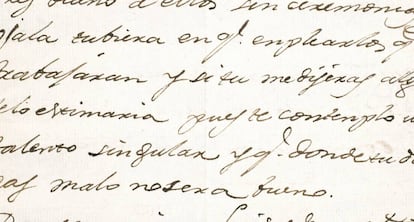 dueño de ellos sin ceremonia
jala tubiera en q.e emplearlos q
trabajáran y si tu me dijéras alg
telo estimaria pues te contemplo u
talento singular y q.e donde tu d
gas malo no sera bueno.